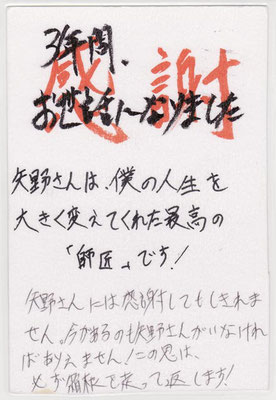 感謝
3年間、
お世話になりました
矢野さんは、僕の人生を
大きく変えてくれた最高の
「師匠」です!
矢野さんには感謝してもしきれま
せん。今があるのも矢野さんがいなけれ
ばありえません!この恩は、
必ず箱根を走って返します!